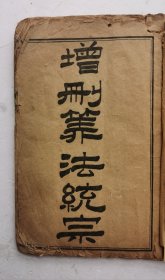 增刪算法統宗